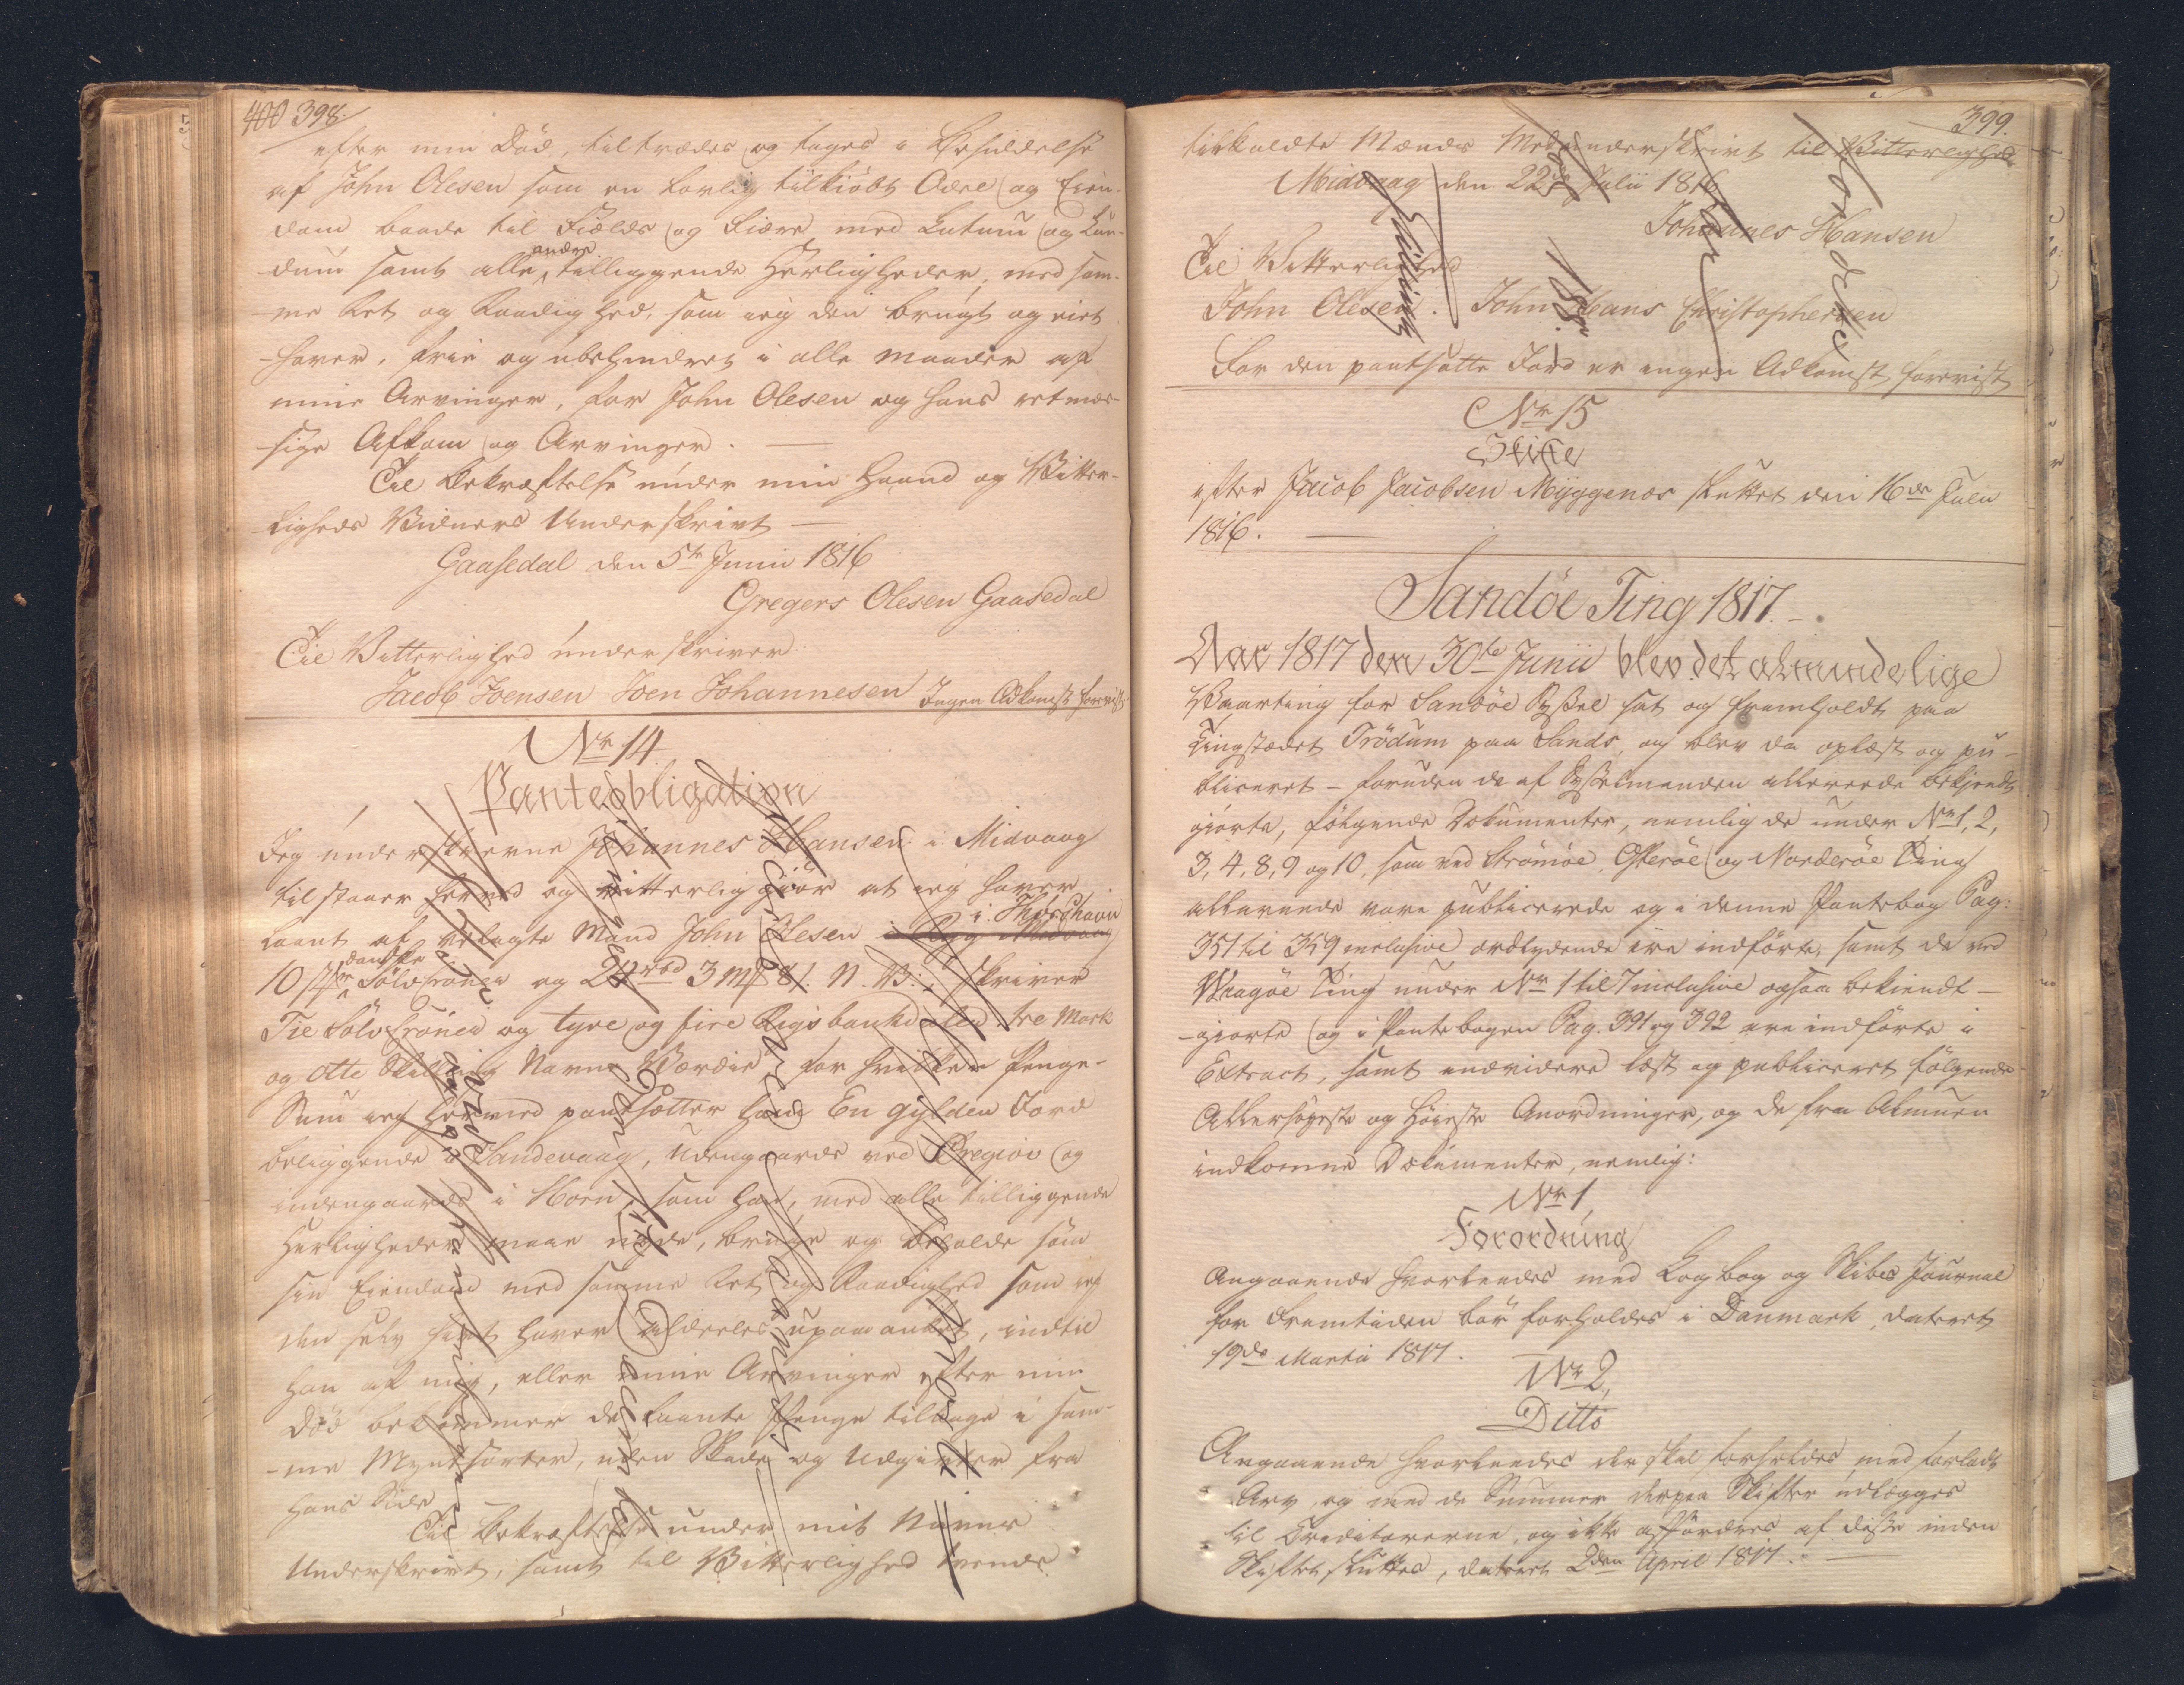 400 398.
efter min Död, tiltrædes og tages i Besiddelse
af John Olesen som en lovlig tilkiöbt Odel og Eien-
dom baade til Fields og Fiære med Lutum og Lun-
dum samt alle andre tilliggende Herligheder, med sam-
me Ret og Raadighed, som ieg den brugt og eiet
haver, frie og ubehindret i alle Maader af
mine Arvinger, for John Olesen og hans retmæs-
sige Afkom og Arvinger.
Til Bekræftelse under min Haand og Vitter-
ligheds Vidners Underskrivt
Gaasedal den 5te Junii 1816
Gregers Olesen Gaasedal
Til Vitterlighed underskriver
Jacob Joensen Joen Johannesen Ingen Adkomst forevist
Nr 14
Panteobligation
Jeg underskrevne Johannes Hansen i Midvaag
tilstaaer herved og vitterlig giör at ieg haver
laant af velagte Mand John Olesen i Thorshavn
10 danske Sölvkroner og 24 rbd 3 mk 8 s. N. V.: skriver
Tie Sölv Kroner og tyve og fire Rigsbankdaler tre Mark
og otte Skilling Navne Værdie for hvilken Penge-
Sum ieg herved pantsætter ham En Gylden Jord
beliggende i Sandevaag, Udengaards ved Öregiov og
indengaards i Horn, som han, med alle tilliggende
Herligheder maae nyde, bruge og beholde som
sin Eiendom med samme Ret og Raadighed som ieg
den selv havt haver aldeeles upaaanket, indtil
han af mig, eller mine Arvinger efter min
Död bekommer de laante Penge tilbage i sam-
me Myntsorter, uden Skade og Udgivter fra
hans Side
Til Bekræftelse under mit Navns
Underskrivt, samt til Vitterlighed tvende
399.
tilkaldte Mænds Medunderskrivt til Vitterlighed
Midvaag den 22de Julii 1816
Johannes Hansen
Til Vitterlighed
John Olesen. John Hans Christophersen
For den pantsatte Jord er ingen Adkomst forevist
Nr 15
Skifte
efter Jacob Jacobsen Myggenæs sluttet den 16de Julii
1816.
Sandöe Ting 1817.
Aar 1817 den 30te Junii blev det almindelige
Vaarting for Sandöe Syssel sat og fremholdt paa
Tingstædet Trödum paa Sands, og blev da oplæst og pu-
bliceret - foruden de af Sysselmanden allerede bekjendt
giorte, fölgende Dokumenter, nemlig de under Nr 1, 2,
3, 4, 8, 9 og 10, som ved Strömöe, Österöe og Norderöe Ting
allerede vare publicerede og i denne Pantebog Pag:
351 til 359 inclusive ordlydende ere indförte, samt de ved
Waagöe Ting under Nr 1 til 7 inclusive ogsaa bekiendt-
giorte og i Pantebogen Pag. 391 og 392 ere indförte i
Extract, samt endvidere læst og publiceret fölgende
Allerhöyeste og Höieste Anordninger, og de fra Almuen
indkomne Dokumenter, nemlig:
Nr 1,
Forordning
Angaaende hvorledes med Logbog og Skibs Journal
for Fremtiden bör forholdes i Danmark, dateret
19de Martii 1817.
Nr 2,
Ditto
Angaaende hvorledes der skal forholdes med forladt
Arv, og med de Summer derpaa Skifter udlægges
til Creditorerne, og ikke affordres af disse inden
Skiftet sluttes, dateret 2den April 1817.